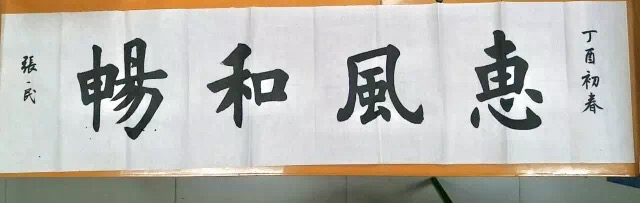 丁酉初春
惠風和暢
張一民